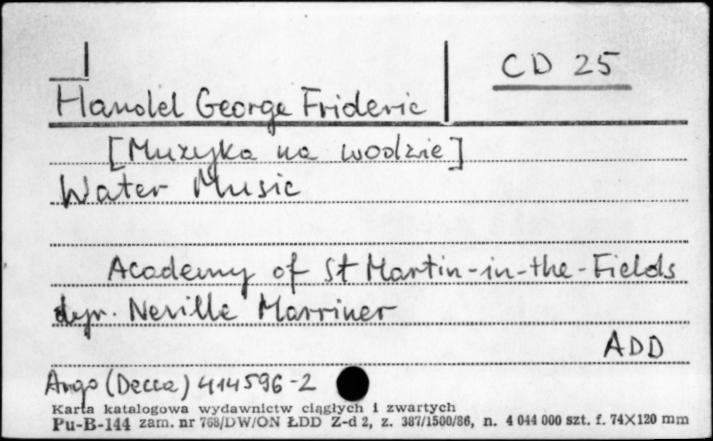 CD 25
Handel George Frideric
[Muzyka na wodzie]
Water Music
Academy of St Martin-in-the-Fields
dyr. Neville Marriner
ADD
Argo (Decca) 414596-2
Karta katalogowa wydawnictw ciągłych i zwartych
Pu-B-144 zam. nr 768/DW/ON ŁDD Z-d 2, z. 387/1500/86, n. 4 044 000 szt. f. 74X120 mm